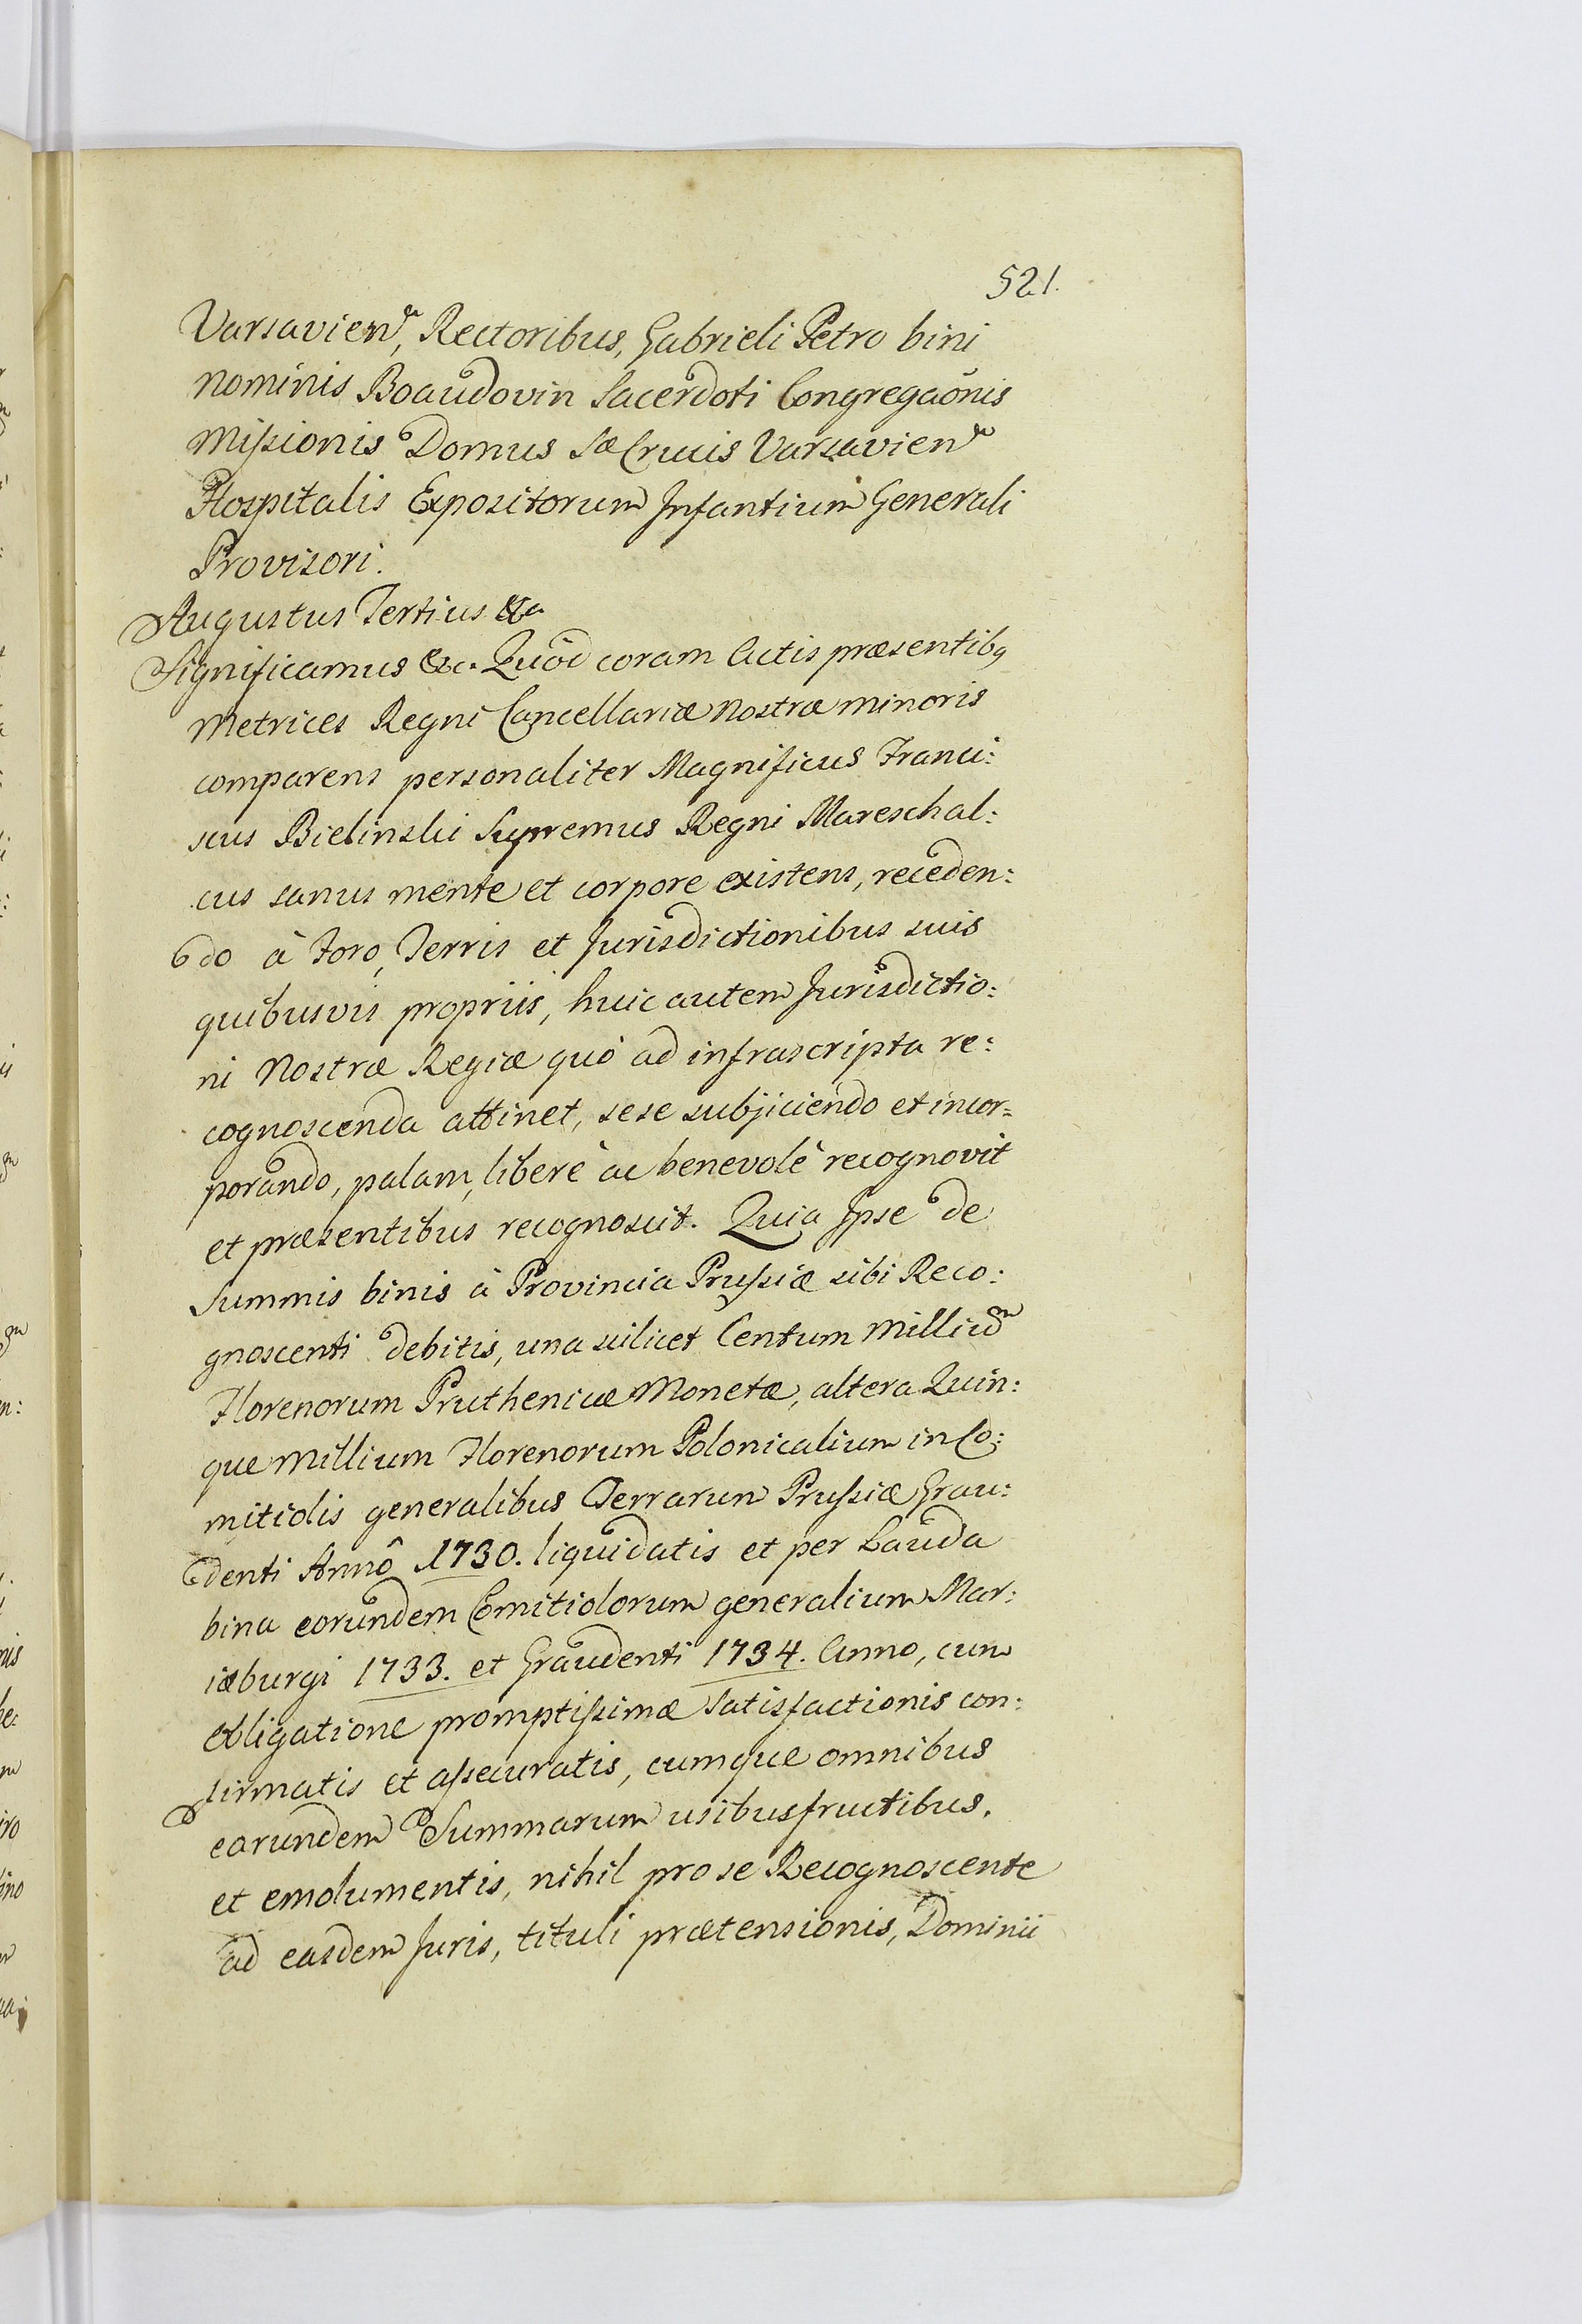 521.
Varsavien, Rectoribus, Gabrieli Petro bini
nominis Boaudovin Sacerdoti Congregaõnis
Missionis Domus Sæ Crucis Varsavien
Hospitalis Expositorum Infantium Generali
Provisori.
Augustus Tertius &a
Significamus &c. Quòd coram Actis præsentibq
Metrices Regni Cancellariæ Nostræ minoris
comparens personaliter Magnificus Franci:
scus Bielinski Supremus Regni Mareschal:
cus sanus mente et corpore existens, receden:
do à Foro, Terris et Jurisdictionibus suis
quibusvis propriis, huic autem Jurisdictio:
ni Nostræ Regiæ quò ad infrascripta re:
cognoscenda attinet, sese subjiciendo et incor=
porando, palam, liberè ac benevolè recognovit
et præsentibus recognoscit. Quia Ipse de
Summis binis à Provincia Prussiæ sibi Reco:
gnoscenti debitis, una scilicet Centum Milliu̅m
Florenorum Pruthenicæ Monetæ, altera Quin:
que Millium Florenorum Polonicalium in Co:
mitiolis generalibus Terrarum Prussiæ Grau:
denti Annô 1730. liquidatis et per Lauda
bina eorundem Comitiolorum generalium Mar:
iæburgi 1733. et Graudenti 1734. Anno, cum
obligatione promptissimæ Satisfactionis con:
firmatis et assecuratis, cumque omnibus
earundem Summarum usibusfructibus,
et emolumentis, nihil pro se Recognoscente
ad easdem Juris, tituli prætensionis, Dominii